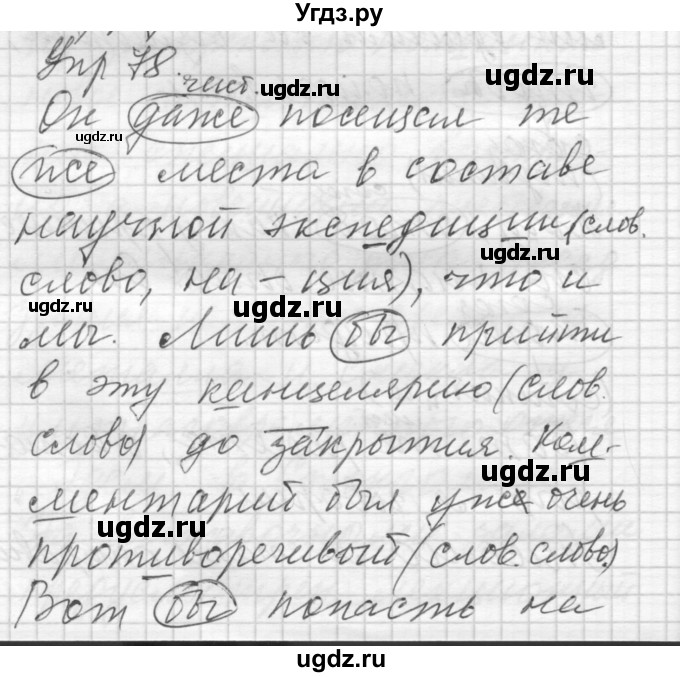 Угдз.ру
Упр 78.
част.
Он даже посещал те
же места в составе
научной экспедиции (слов.
слово, на – ция), что и
мы. Лишь бы прийти
в эту канцелярию (слов.
слово) до закрытия. Ком-
ментарий был уже очень
противоречивый (слов. слово.)
Вот бы попасть на
ugdz.ru
ugdz.ru
ugdz.ru
ugdz.ru
ugdz.ru
ugdz.ru
ugdz.ru
ugdz.ru
ugdz.ru
ugdz.ru